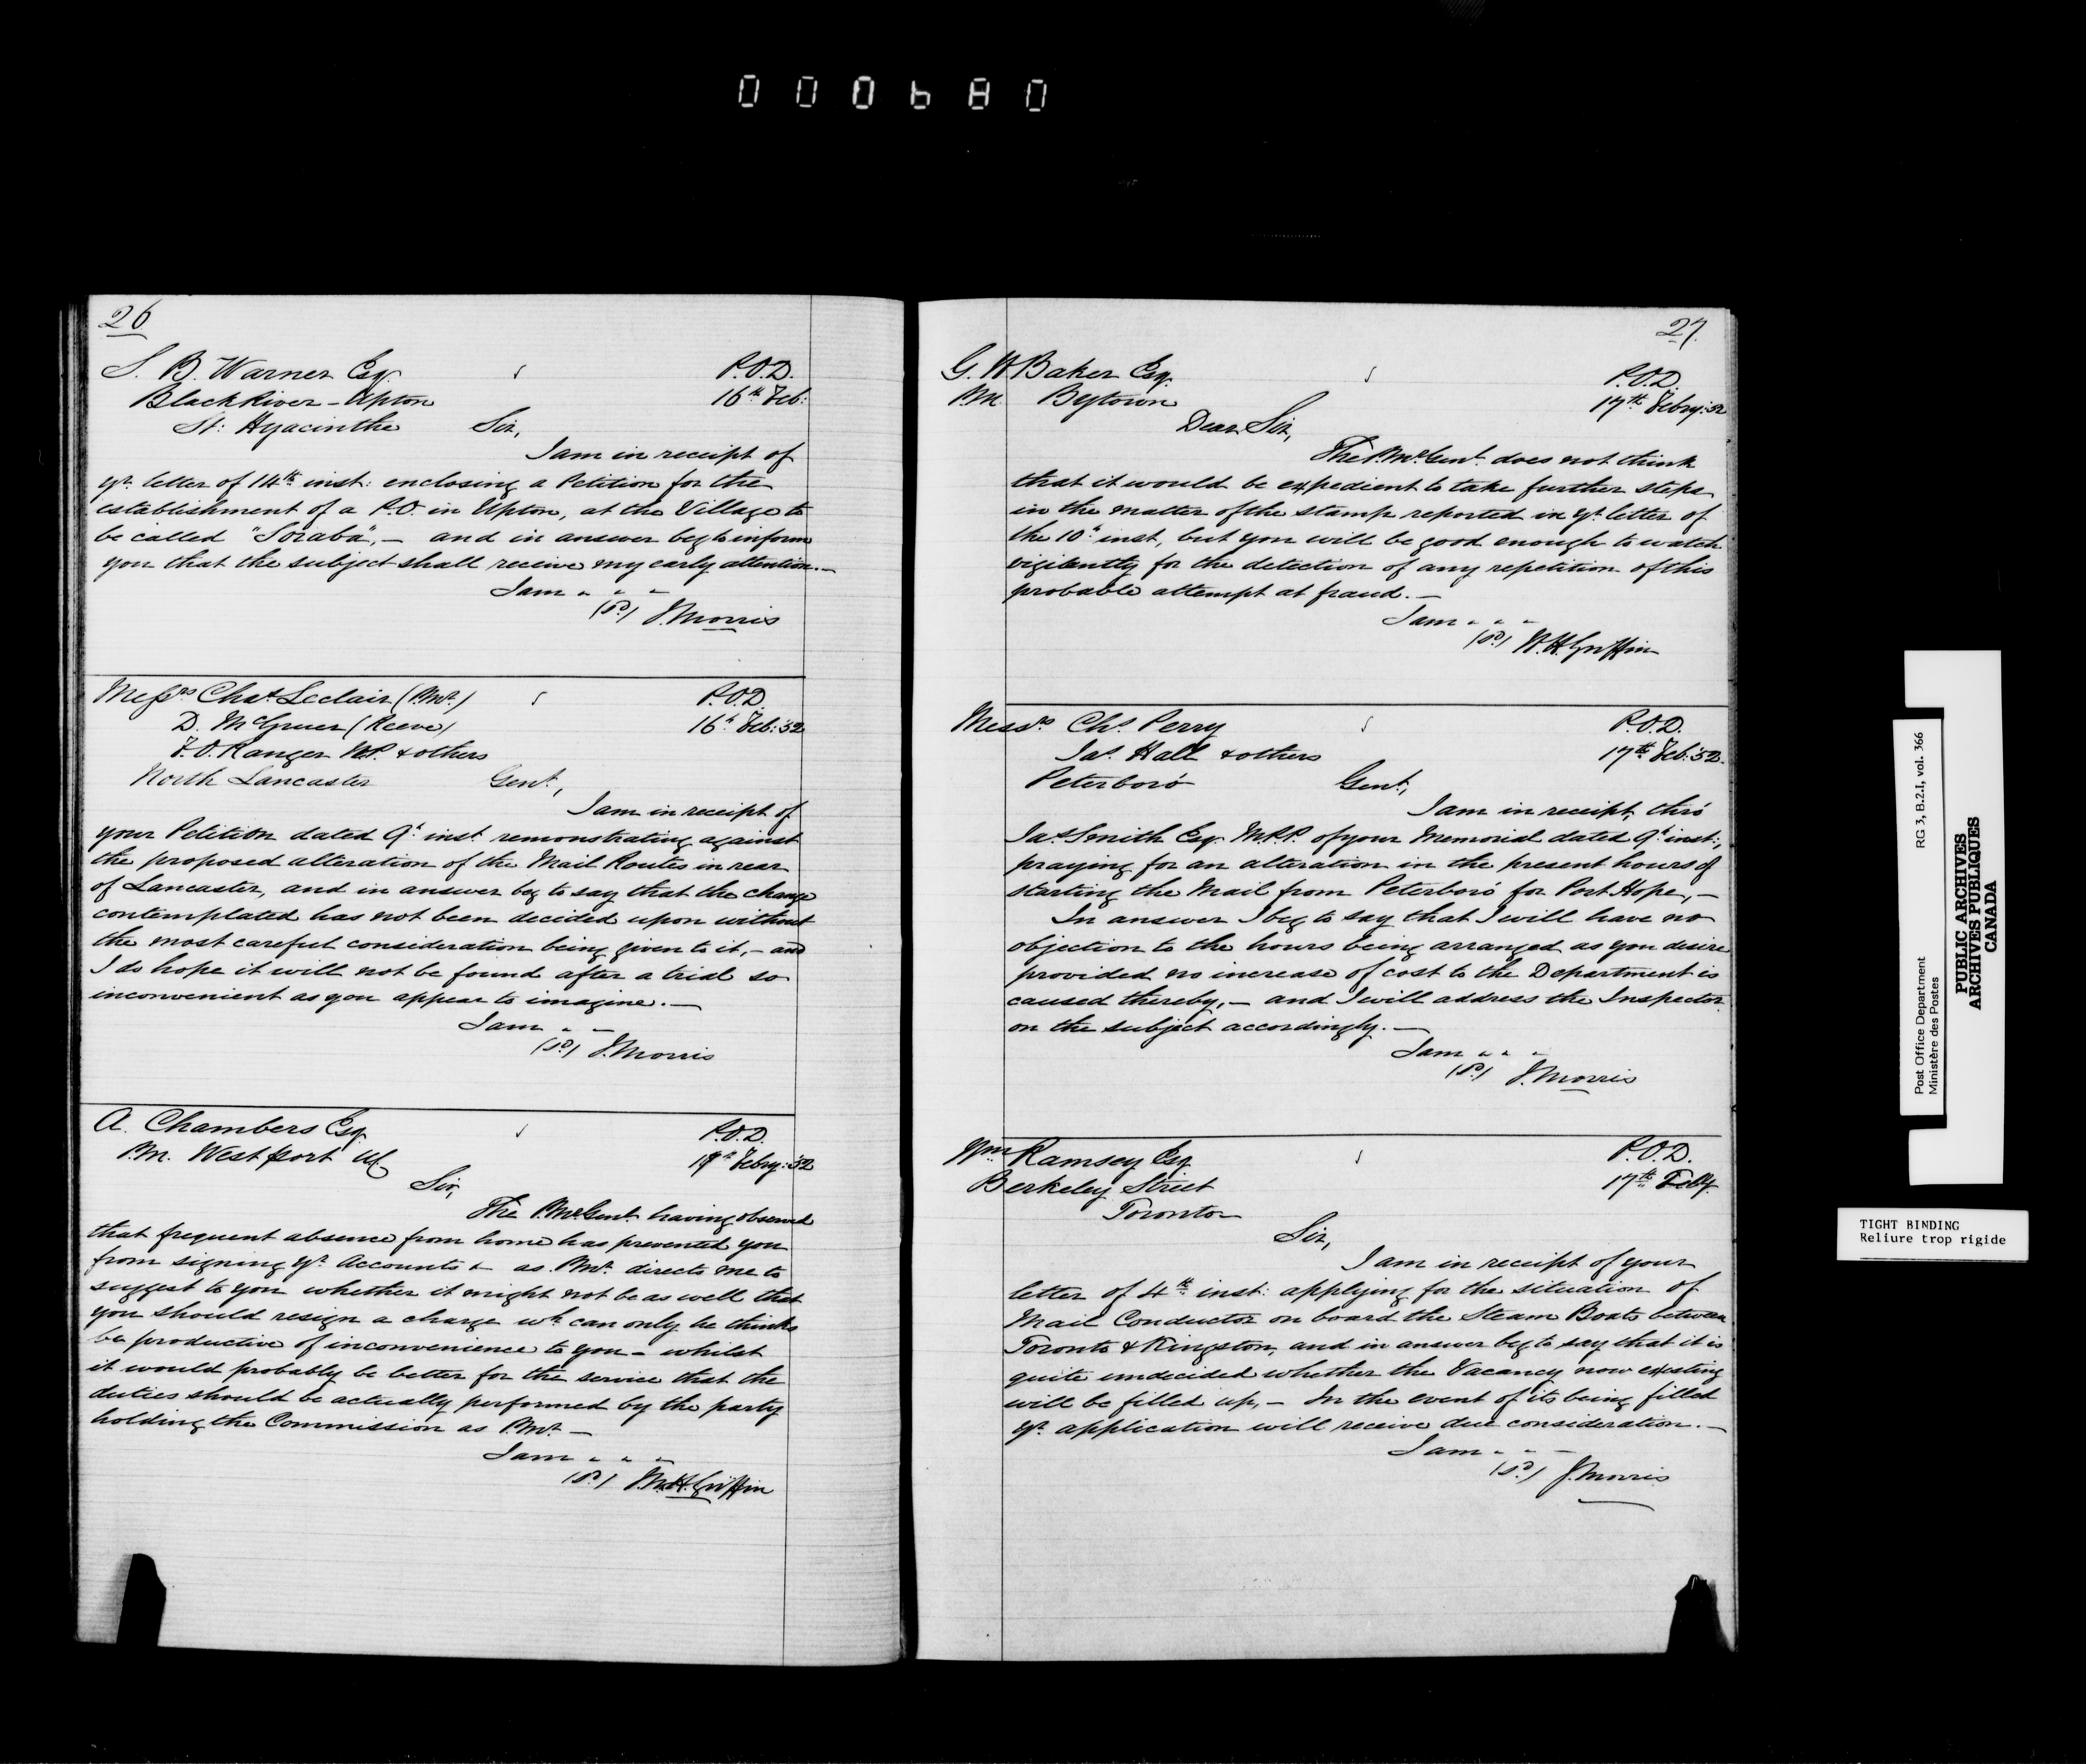 000680
26
S. B. Warner Esq. P.O.D.
Black River - Upton 16th Feb:
St: Hyacinthe Sir,
I am in receipt of
yr. letter of 14th inst: enclosing a Petition for the
establishment of a P.O. in Upton, at the Village to
be called "Soraba", — and in answer beg to inform
you that the subject shall receive my early attention. —
I am " " "
(sd) J. Morris
Messrs Chas Leclair (P.Mr.) P.O.D.
D. McGruer (Reeve) 16th Feb: '52
F. O. Ranger M.P. & others
North Lancaster Gent.,
I am in receipt of
your Petition dated 9th inst remonstrating against
the proposed alteration of the Mail Routes in rear
of Lancaster, and in answer beg to say that the change
contemplated has not been decided upon without
the most careful consideration being given to it, — and
I do hope it will not be found after a trial so
inconvenient as you appear to imagine. —
I am " "
(sd) J. Morris
A. Chambers Esq P.O.D.
P.M. Westport 17th Febry: '52
Sir,
The P.Mr Genl. having observed
that frequent absence from home has prevented you
from signing yr. Accounts & as P.Mr. directs me to
suggest to you whether it might not be as well that
you should resign a charge wh can only he thinks
be productive of inconvenience to you — whilst
it would probably be better for the service that the
duties should be actually performed by the party
holding the Commission as P.Mr. —
I am " " "
(sd) W.H. Griffin
27.
G. W Baker Esq. P.O.D.
P.M. Bytown 17th Febry: 52
Dear Sir,
The P.Mr Genl. does not think
that it would be expedient to take further steps
in the matter of the stamp reported in yr. letter of
the 10th inst, but you will be good enough to watch
vigilantly for the detection of any repetition of this
probable attempt at fraud. —
I am " " "
(sd) W. H. Griffin
Messrs. Chs Perry P.O.D.
Jas. Hall & others 17th Feb: '52.
Peterboro' Gent.,
I am in receipt, thro'
Jas Smith Esq. M.P.P. of your Memorial dated 9th inst:,
praying for an alteration in the present hours of
starting the Mail from Peterboro' for Port Hope, —
In answer I beg to say that I will have no
objection to the hours being arranged as you desire
provided no increase of cost to the Department is
caused thereby, — and I will address the Inspector
on the subject accordingly. —
I am " " "
(sd) J. Morris
Wm Ramsey Esq. P.O.D.
Berkeley Street 17th Feby.
Toronto
Sir,
I am in receipt of your
letter of 4th inst: applying for the situation of
Mail Conductor on board the Steam Boats between
Toronto & Kingston, and in answer beg to say that it is
quite undecided whether the Vacancy now existing
will be filled up, — In the event of its being filled
yr. application will receive due consideration. —
I am " " —
(sd) J. Morris
Post Office Department RG 3, B.2.I, vol. 366
Ministère des Postes
PUBLIC ARCHIVES
ARCHIVES PUBLIQUES
CANADA
TIGHT BINDING
Reliure trop rigide